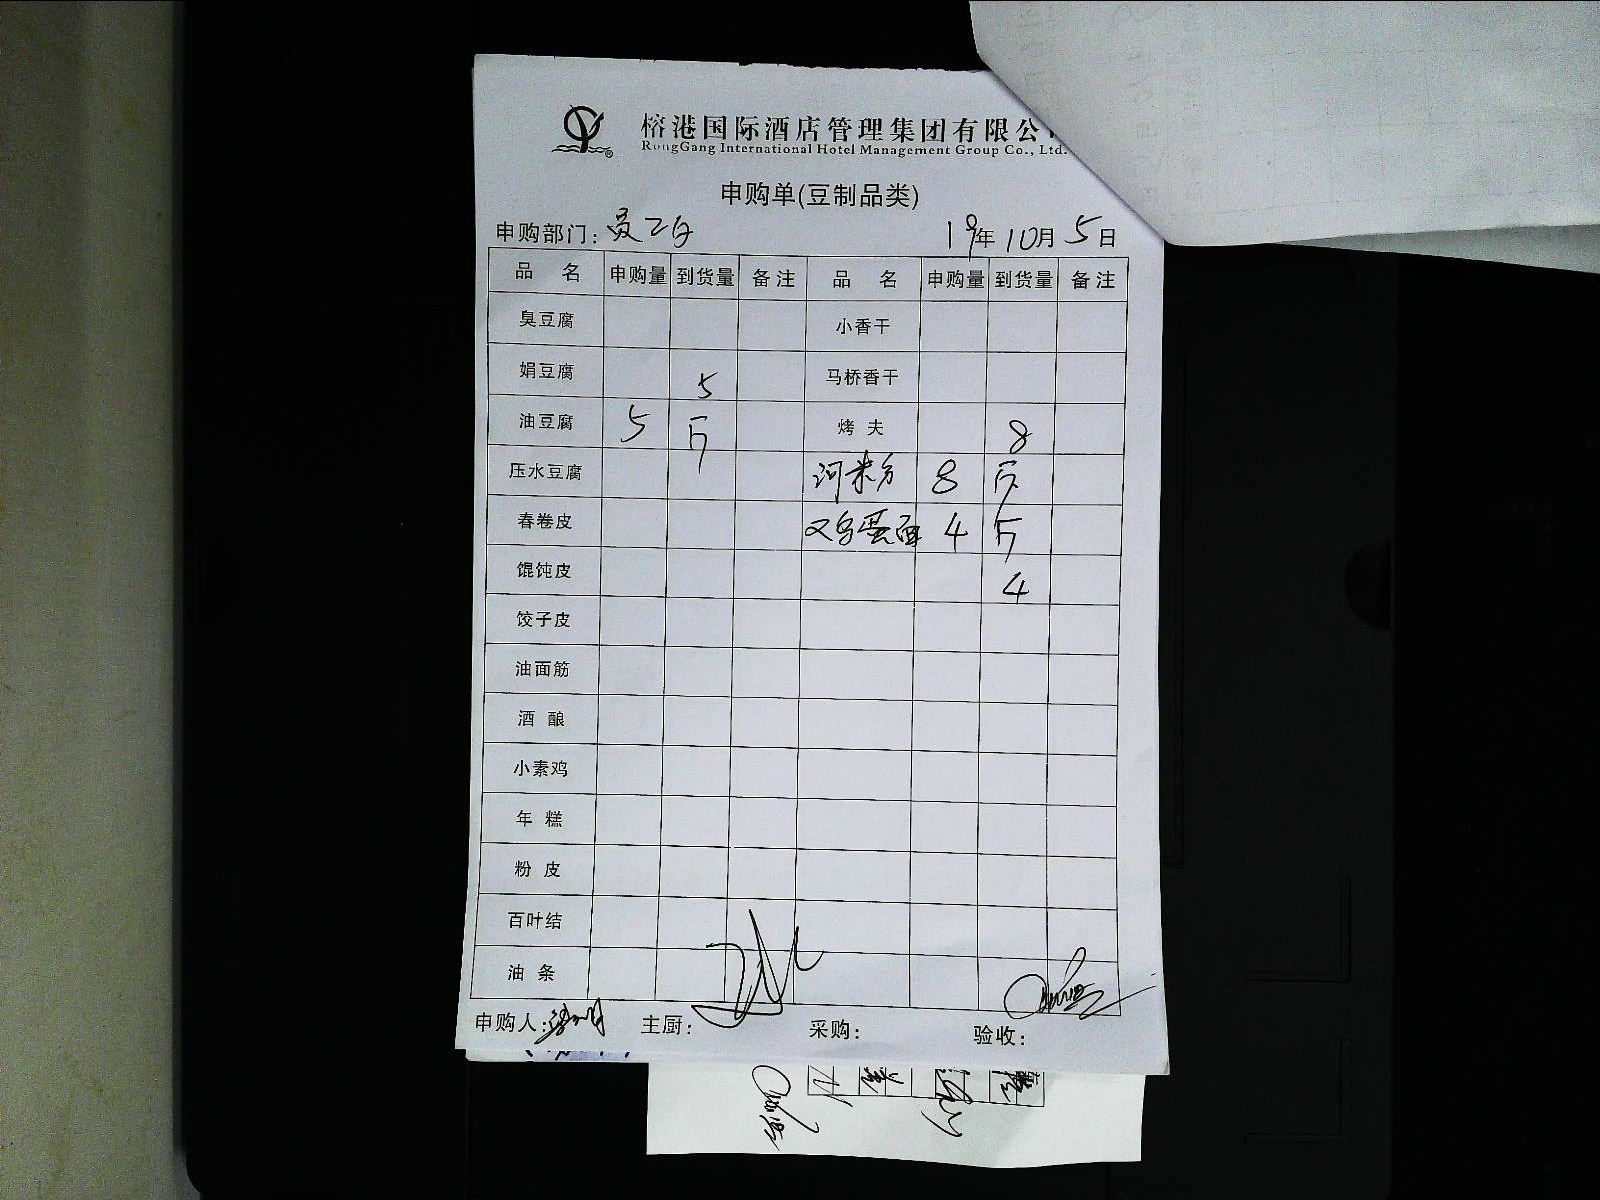 榕港国际酒店管理集团有限公
RongGang International Hotel Management Group Co., Ltd.
申购单(豆制品类)
申购部门: 19年10月5日
品 名 申购量 到货量 备注 品 名 申购量 到货量 备注
臭豆腐 小香干
娟豆腐 5 马桥香干
油豆腐 5 斤 烤 夫 8
压水豆腐 河米分 8 斤
春卷皮 又鸟蛋面 4 斤
馄饨皮 4
饺子皮
油面筋
酒 酿
小素鸡
年 糕
粉 皮
百叶结
油 条
申购人: 主厨: 采购: 验收: